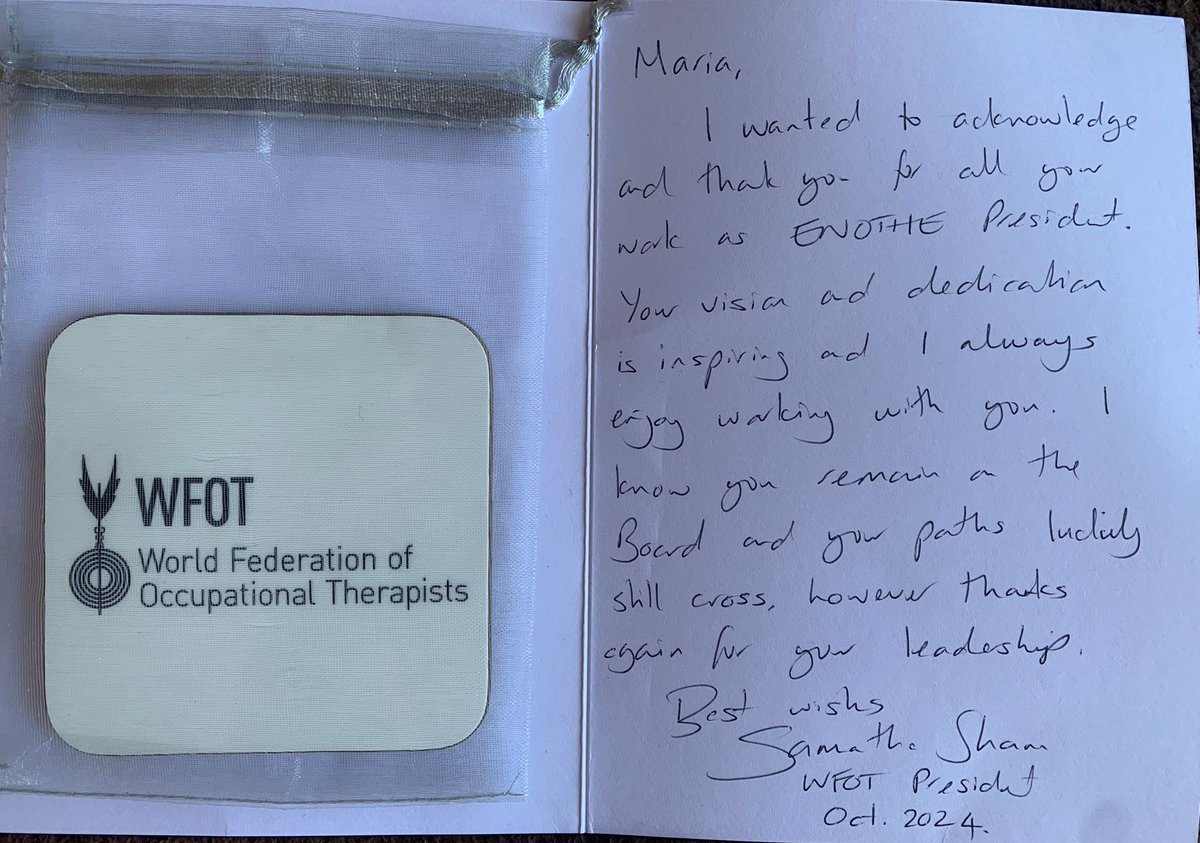 WFOT
World Federation of
Occupational Therapists
Maria,
I wanted to acknowledge
and thank you for all your
work as ENOTHE President.
Your vision and dedication
is inspiring and I always
enjoy working with you. I
know you remain on the
Board and your paths luckily
still cross, however thanks
again for your leadership.
Best wishes
Samantha Sham
WFOT President
Oct. 2024.